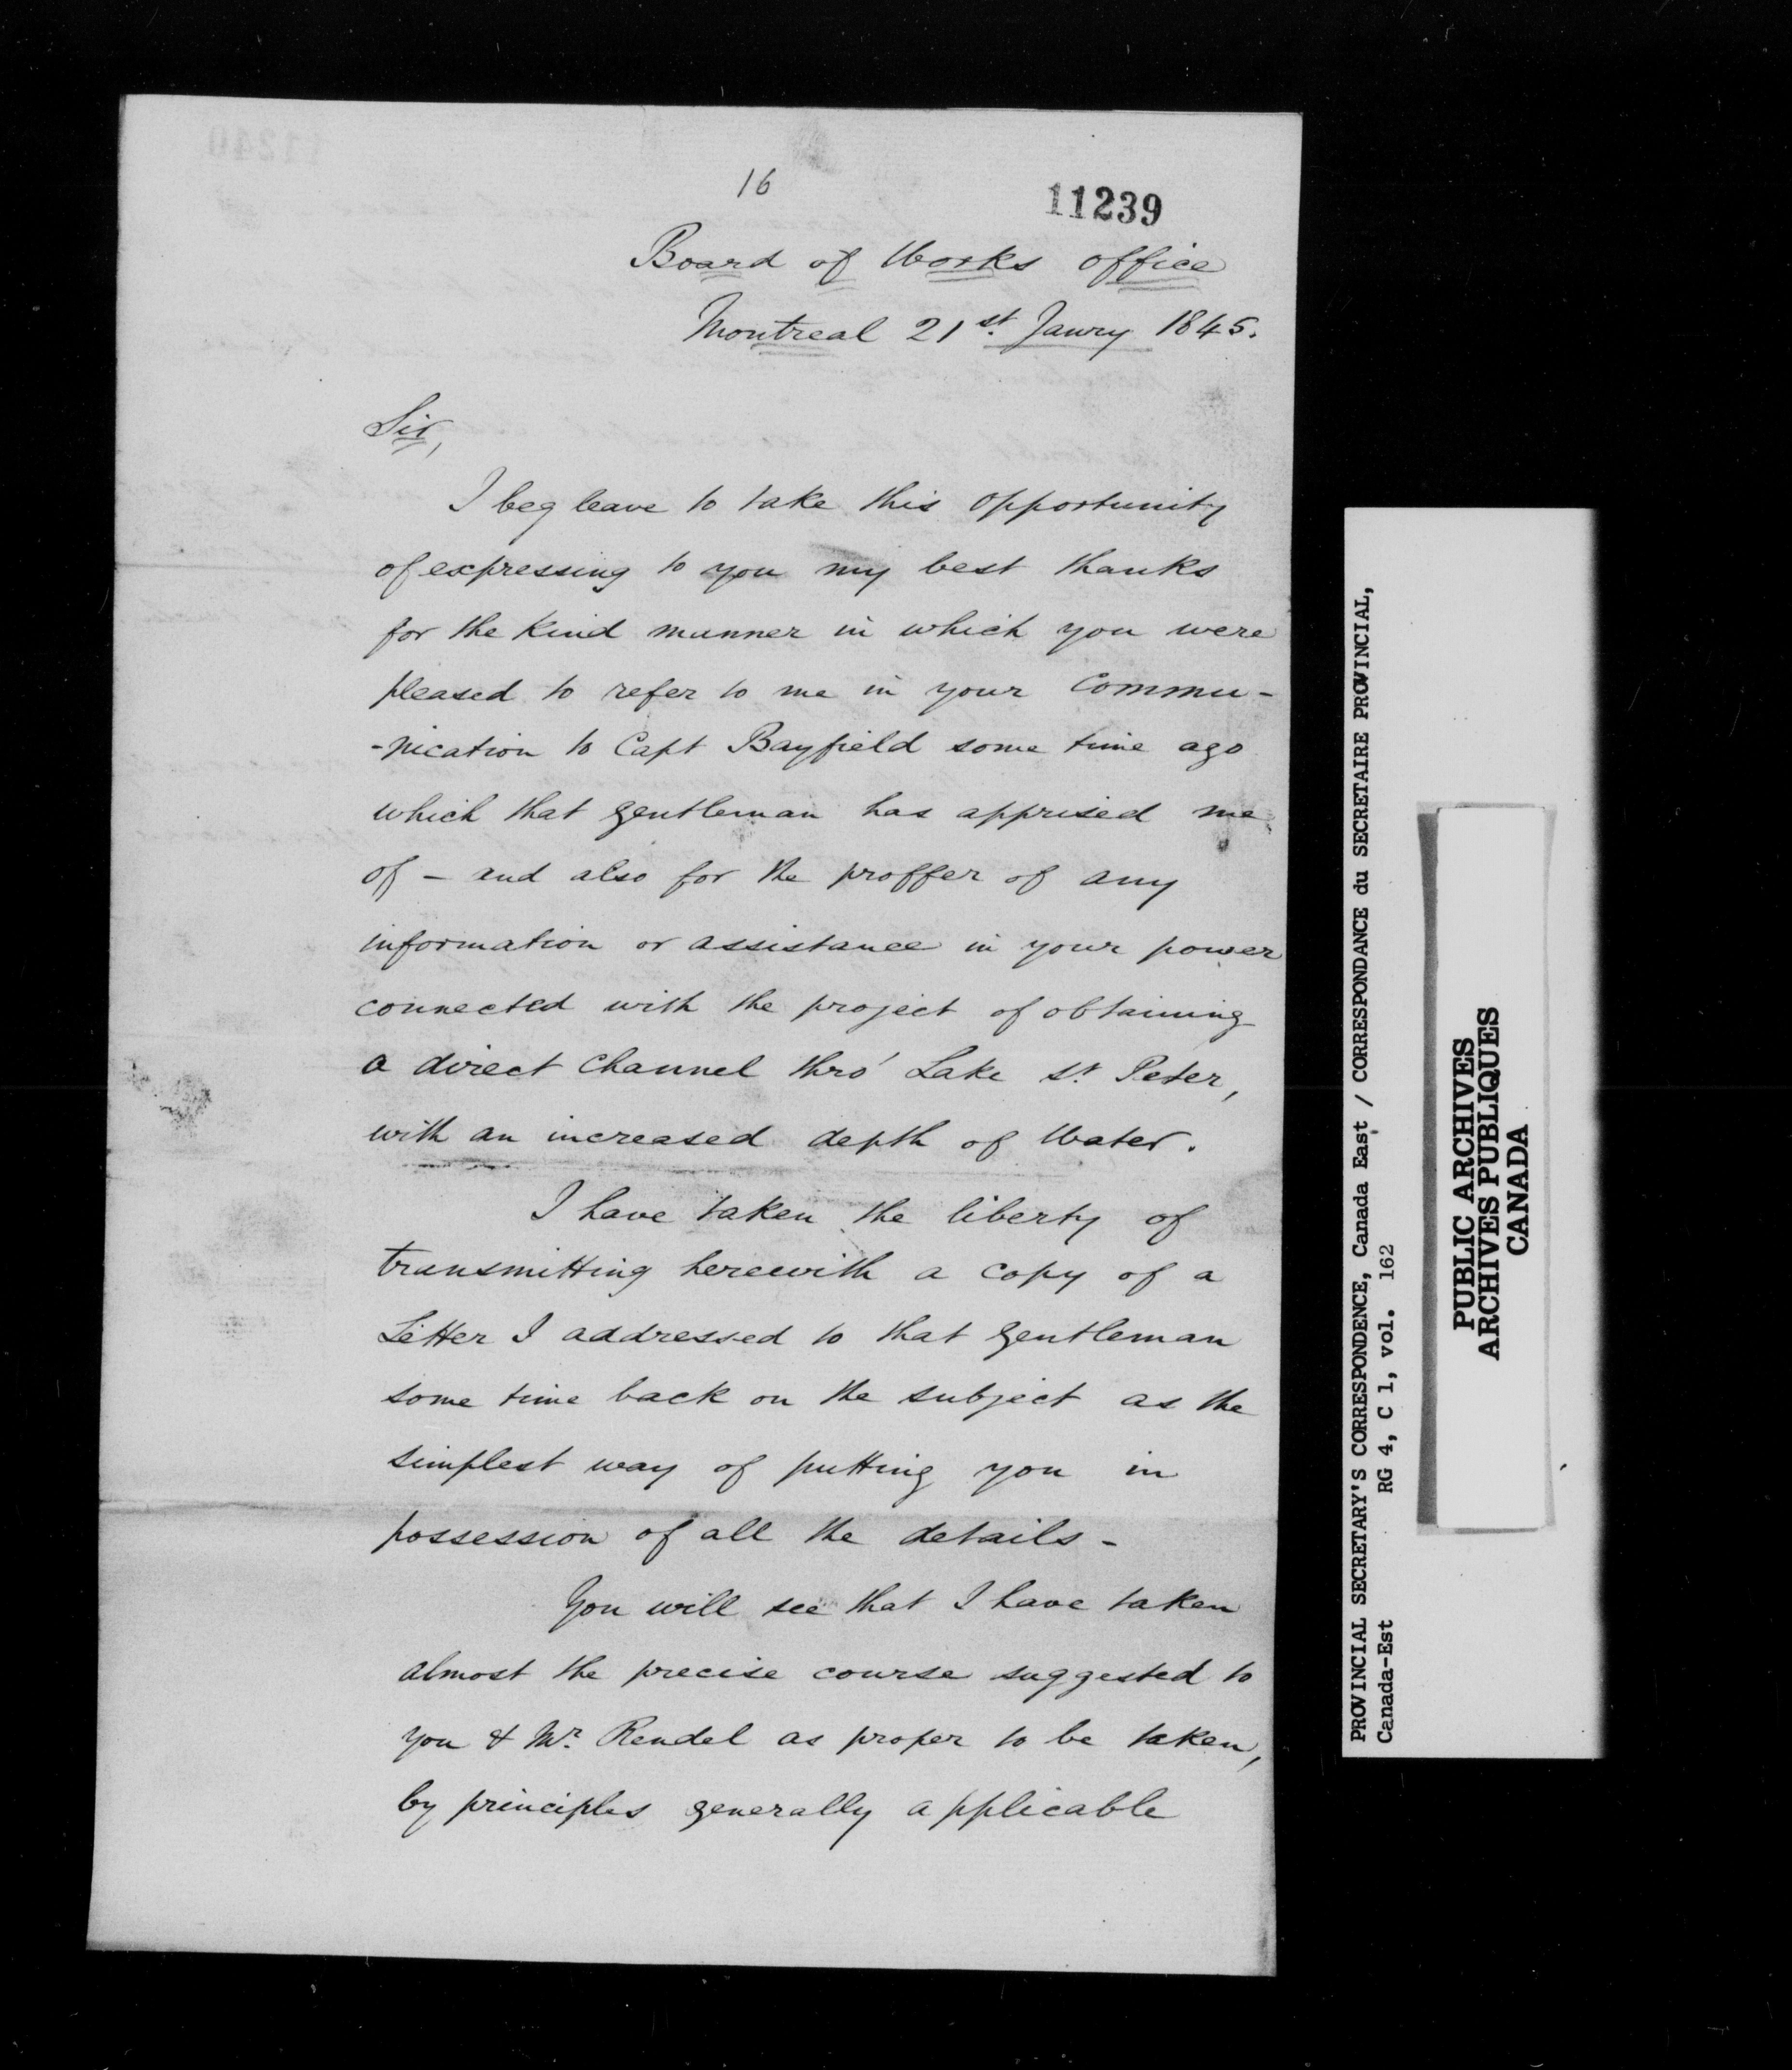 16
11239
Board of Works office
Montreal 21st. Janry 1845.
Sir,
I beg leave to take this opportunity
of expressing to you my best thanks
for the kind manner in which you were
pleased to refer to me in your commu-
-nication to Capt Bayfield some time ago
which that gentleman has apprised me
of - and also for the proffer of any
information or assistance in your power
connected with the project of obtaining
a direct channel thro' Lake St. Peter,
with an increased depth of Water.
I have taken the liberty of
transmitting herewith a copy of a
Letter I addressed to that gentleman
some time back on the subject as the
simplest way of putting you in
possession of all the details -
You will see that I have taken
almost the precise course suggested to
you & Mr. Rendel as proper to be taken,
by principles generally applicable
PROVINCIAL SECRETARY'S CORRESPONDENCE, Canada East / CORRESPONDANCE du SECRETAIRE PROVINCIAL,
Canada-Est RG 4, C 1, vol. 162
PUBLIC ARCHIVES
ARCHIVES PUBLIQUES
CANADA